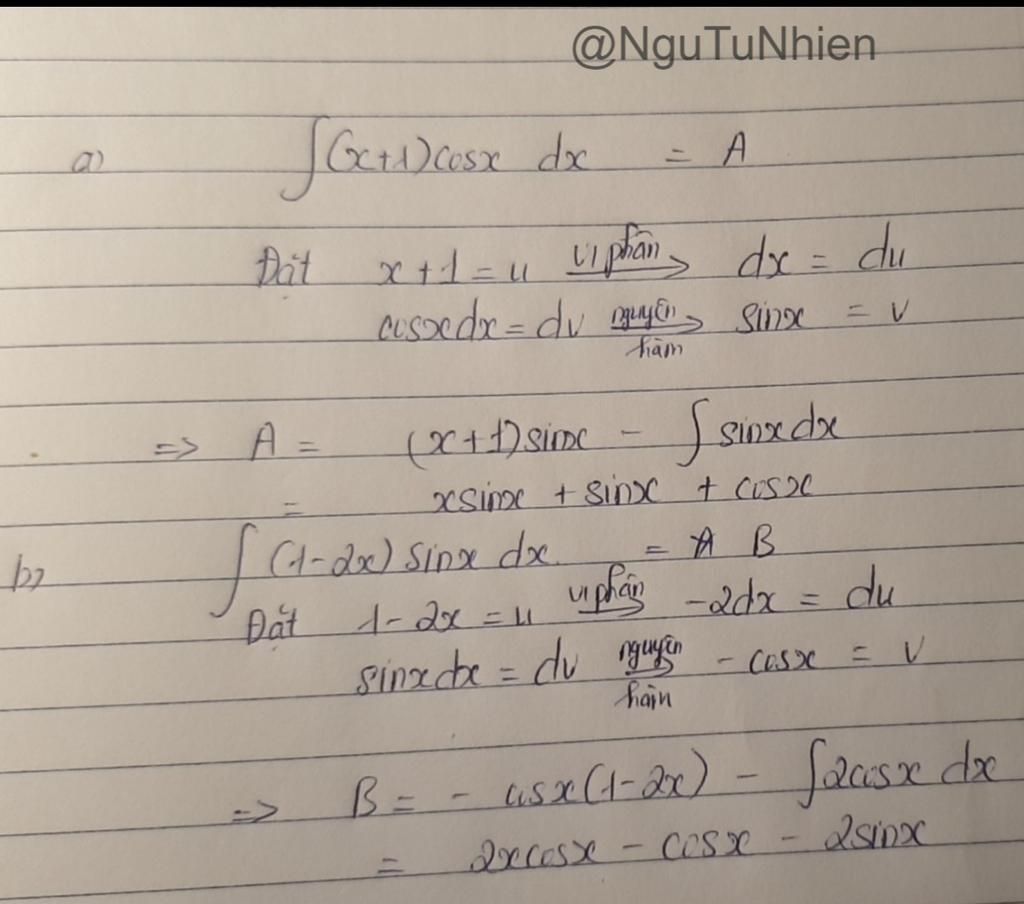 @NguTuNhien
a) ∫(x+1)cosx dx = A
Đặt x+1=u vi phân → dx = du
cosxdx = dv nguyên hàm → sinx = v
=> A = (x+1)sinx - ∫sinxdx
= xsinx + sinx + cosx
b) ∫(1-2x) sinx dx = B
Đặt 1-2x = u vi phân → -2dx = du
sinxdx = dv nguyên hàm → -cosx = v
=> B = - cosx(1-2x) - ∫2cosx dx
= 2xcosx - cosx - 2sinx